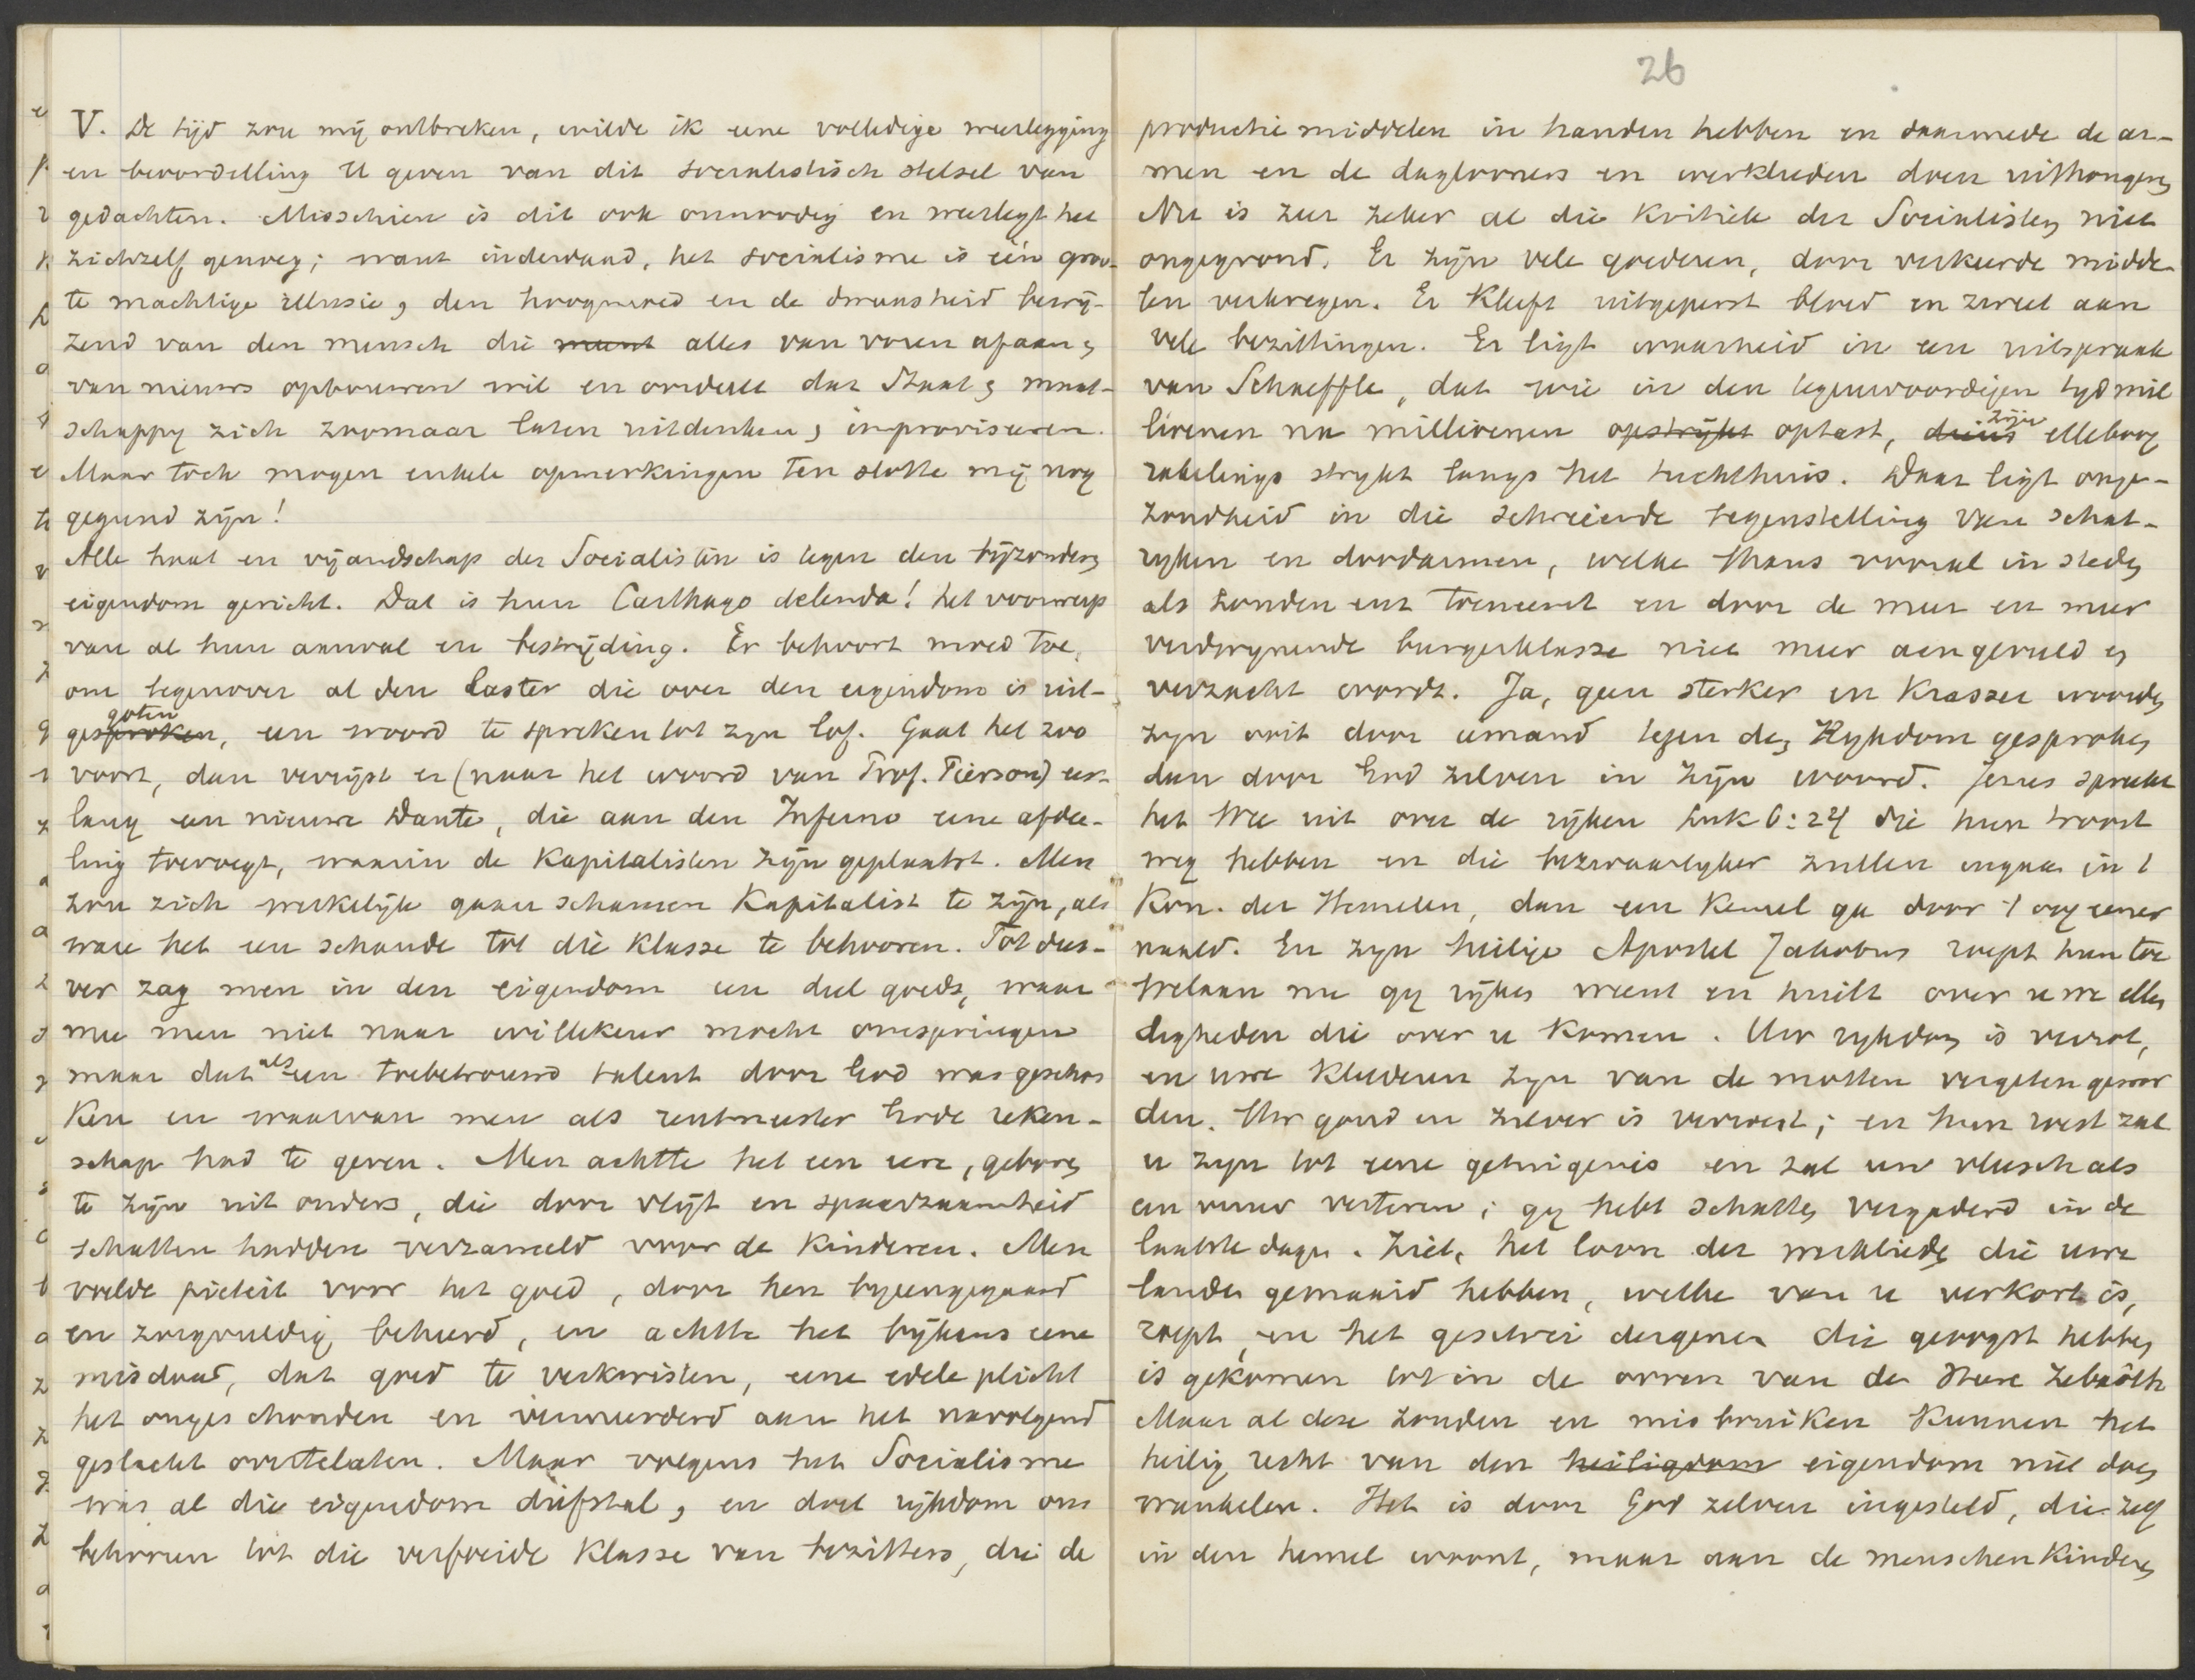 V. De tijd zou mij ontbreken, wilde ik eene volledige weerlegging
en beoordeeling U geven van dit socialistisch stelsel van
gedachten. Misschien is dit ook onnoodig en weerlegt het
zichzelf genoeg; want inderdaad, het socialisme is één groo-
te machtige illusie, den hoogmoed en de dwaasheid bewij-
zend van den mensch die meent alles van voren afaan,
van nieuws opbouwen wil en onderstelt dat Staat, maat-
schappij zich zoomaar laten uitdenken, improviseeren.
Maar toch mogen enkele opmerkingen ten slotte mij nog
gegund zijn!
Alle haat en vijandschap der Socialisten is tegen den bijzonderen
eigendom gericht. Dat is hun Carthago delenda! het voorwerp
van al hun aanval en bestrijding. Er behoort moed toe,
om tegenover al den laster die over den eigendom is uit-
gegoten gesproken, een woord te spreken tot zijn lof. Gaat het zoo
voort, dan verrijst er (naar het woord van Prof. Pierson) eer-
lang een nieuwe Dante, die aan den Inferno eene afdee-
ling toevoegt, waarin de Kapitalisten zijn geplaatst. Men
zou zich werkelijk gaan schamen Kapitalist te zijn, als
ware het een schande tot die klasse te behooren. Tot dus-
ver zag men in den eigendom een deel goeds, waar
mee men niet naar willekeur mocht omspringen
maar dat als een toebetrouwd talent door God was geschon
ken en waarvan men als rentmeester Gode reken-
schap had te geven. Men achtte het een eere, geboren
te zijn uit ouders, die door vlijt en spaarzaamheid
schatten hadden verzameld voor de kinderen. Men
voelde piëteit voor het goed, door hen bijeengegaard
en zorgvuldig beheerd, en achtte het bijkans eene
misdaad, dat goed te verkwisten, eene edele plicht
het ongeschonden en vermeerderd aan het navolgend
geslacht overtelaten. Maar volgens het Socialisme
was al die eigendom diefstal, en doet rijkdom ons
behooren tot die verfoeide klasse van bezitters, die de
26
productie middelen in handen hebben en daarmede de ar-
men en de daglooners en werklieden doen uithongeren
Nu is zeer zeker al die kritiek der Socialisten niet
ongegrond. Er zijn vele goederen, door verkeerde midde-
len verkregen. Er kleeft uitgeperst bloed en zweet aan
vele bezittingen. Er ligt waarheid in een uitspraak
van Schaeffle, dat wie in den tegenwoordigen tijd mil
lioenen na millioenen opstrijkt optast, diens zijn elleboog
rakelings strijkt langs het tuchthuis. Daar ligt onge-
zondheid in die schreiende tegenstelling van schat-
rijken en doodarmen, welke thans vooral in steden
als Londen enz toeneemt en door de meer en meer
verdwijnende burgerklasse niet meer aengevuld en
verzacht wordt. Ja, geen sterker en krasser woorden
zijn ooit door iemand tegen den Rijkdom gesproken
dan door God zelven in zijn woord. Jezus spreekt
het Wee uit over de rijken Luk 6:24 die hun troost
weg hebben en die bezwaarlyker zullen ingaan in t
Kon. der Hemelen, dan een kemel ga door t oog eener
naald. En zijn heilige Apostel Jakobus roept hun toe
Welaan nu gij rijken weent en huilt over uwe ellen
digheden die over u komen. Uw rijkdom is verrot,
en uwe kleederen zijn van de motten vergeten gewor
den. Uw goud en zilver is verroest; en hun roest zal
u zijn tot eene getuigenis en zal uw vleesch als
een vuur verteren; gij hebt schatten vergaderd in de
laatste dagen. Ziet, het loon der werklieden die uwe
landen gemaaid hebben, welke van u verkort is,
roept, en het geschrei dergenen die geoogst hebben
is gekomen tot in de ooren van de Heere Zebaôth
Maar al deze zonden en misbruiken kunnen het
heilig recht van den heiligdom eigendom niet doen
wankelen. Het is door God zelven ingesteld, die zelf
in den hemel woont, maar aan de menschen kinderen